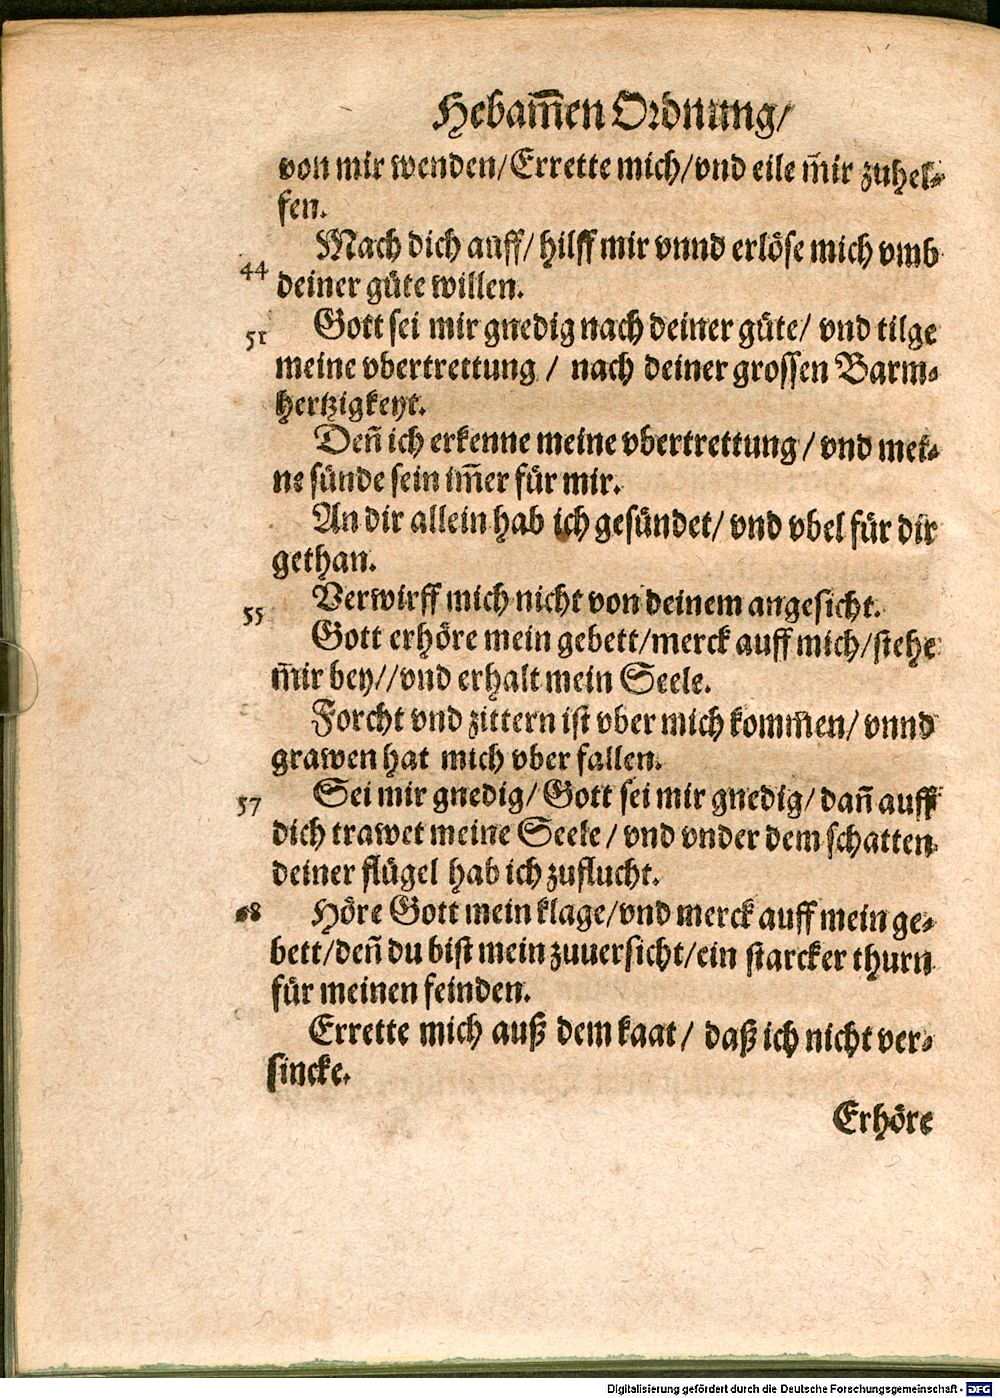 Hebam̃en Ordnung/
von mir wenden/Errette mich/vnd eile m̃ir zuhel⸗
fen.
Mach dich auff/ hilff mir vnnd erlöse mich vmb
44 deiner güte willen.
51 Gott sei mir gnedig nach deiner güte/ vnd tilge
meine vbertrettung / nach deiner grossen Barm⸗
hertzigkeyt.
Deñ ich erkenne meine vbertrettung / vnd mei⸗
ne sünde sein im̃er für mir.
An dir allein hab ich gesündet/ vnd vbel für dir
gethan.
55 Verwirff mich nicht von deinem angesicht.
Gott erhöre mein gebett/merck auff mich/stehe
m̃ir bey//vnd erhalt mein Seele.
Forcht vnd zittern ist vber mich kom̃en/ vnnd
grawen hat mich vber fallen.
57 Sei mir gnedig/ Gott sei mir gnedig/ dañ auff
dich trawet meine Seele / vnd vnder dem schatten
deiner flügel hab ich zuflucht.
68 Höre Gott mein klage/vnd merck auff mein ge⸗
bett/deñ du bist mein zuuersicht/ein starcker thurn
für meinen feinden.
Errette mich auß dem kaat/ daß ich nicht ver⸗
sincke.
Erhöre
Digitalisierung gefördert durch die Deutsche Forschungsgemeinschaft - DFG